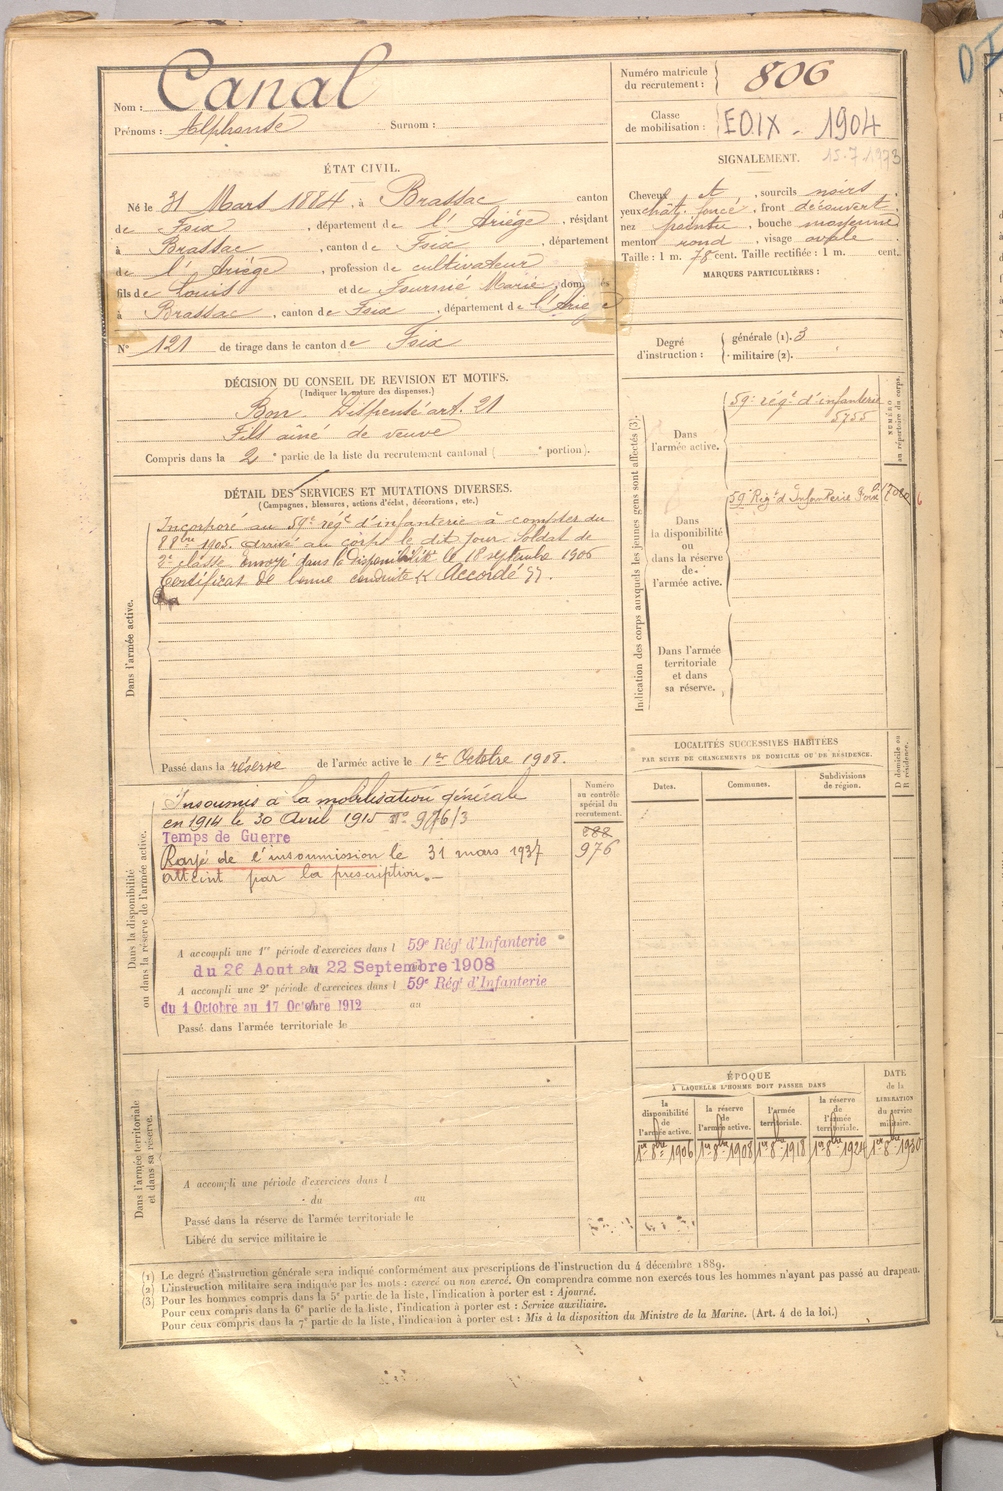 Nom : Canal
Prénoms : Alphonse Surnom :
Numéro matricule du recrutement : 806
Classe de mobilisation : 1904
ÉTAT CIVIL.
Né le 31 Mars 1884, à Brassac canton
de Foix, département de l'Ariége, résidant
à Brassac, canton de Foix, département
de l'Ariége, profession de cultivateur
fils de Louis et de Fournié Marie, dom
à Brassac, canton de Foix, département de l'Arie
N° 121 de tirage dans le canton de Foix
SIGNALEMENT. 15.7.1973
Cheveux et, sourcils noirs
yeux chât. foncé, front découvert
nez pointu, bouche moyenne
menton rond, visage ovale
Taille : 1 m. 78 cent. Taille rectifiée : 1 m. cent.
MARQUES PARTICULIÈRES :
Degré d'instruction :
générale (1). 3
militaire (2).
DÉCISION DU CONSEIL DE REVISION ET MOTIFS.
(Indiquer la nature des dispenses.)
Bon Dispensé art. 21
Fils aîné de veuve
Compris dans la 2e partie de la liste du recrutement cantonal ( e portion).
DÉTAIL DES SERVICES ET MUTATIONS DIVERSES.
(Campagnes, blessures, actions d'éclat, décorations, etc.)
Dans l'armée active.
Incorporé au 59e régt d'infanterie à compter du
8bre 1905. arrivé au corps le dit jour. Soldat de
2e classe. Envoyé dans la Disponibilité le 18 septembre 1906
Certificat de bonne conduite « Accordé ».
Passé dans la réserve de l'armée active le 1er Octobre 1908.
Indication des corps auxquels les jeunes gens sont affectés (3).
NUMÉRO au répertoire du corps.
Dans l'armée active.
59e régt d'infanterie
5755
Dans la disponibilité ou dans la réserve de l'armée active.
59e Régt d'Infanterie Foix
Dans l'armée territoriale et dans sa réserve.
Dans la disponibilité ou dans la réserve de l'armée active.
Numéro au contrôle spécial du recrutement.
Insoumis à la mobilisation générale
en 1914 le 30 Avril 1915 n° 976/3
Temps de Guerre
Rayé de l'insoumission le 31 mars 1937
atteint par la prescription.
888
976
A accompli une 1re période d'exercices dans l 59e Régt d'Infanterie
du 26 Aout au 22 Septembre 1908
A accompli une 2e période d'exercices dans l 59e Régt d'Infanterie
du 1 Octobre au 17 Octobre 1912 au
Passé dans l'armée territoriale le
LOCALITÉS SUCCESSIVES HABITÉES
PAR SUITE DE CHANGEMENTS DE DOMICILE OU DE RÉSIDENCE.
Dates.
Communes.
Subdivisions de région.
D domicile ou R résidence.
ÉPOQUE
À LAQUELLE L'HOMME DOIT PASSER DANS
la disponibilité de l'armée active.
la réserve de l'armée active.
l'armée territoriale.
la réserve de l'armée territoriale.
DATE de la LIBÉRATION du service militaire.
1er 8bre 1906
1er 8bre 1908
1er 8bre 1918
1er 8bre 1924
1er 8bre 1930
Dans l'armée territoriale et dans sa réserve.
A accompli une période d'exercices dans l
du au
Passé dans la réserve de l'armée territoriale le
Libéré du service militaire le
(1) Le degré d'instruction générale sera indiqué conformément aux prescriptions de l'instruction du 4 décembre 1889.
(2) L'instruction militaire sera indiquée par les mots : exercé ou non exercé. On comprendra comme non exercés tous les hommes n'ayant pas passé au drapeau.
(3) Pour les hommes compris dans la 5e partie de la liste, l'indication à porter est : Ajourné.
Pour ceux compris dans la 6e partie de la liste, l'indication à porter est : Service auxiliaire.
Pour ceux compris dans la 7e partie de la liste, l'indication à porter est : Mis à la disposition du Ministre de la Marine. (Art. 4 de la loi.)